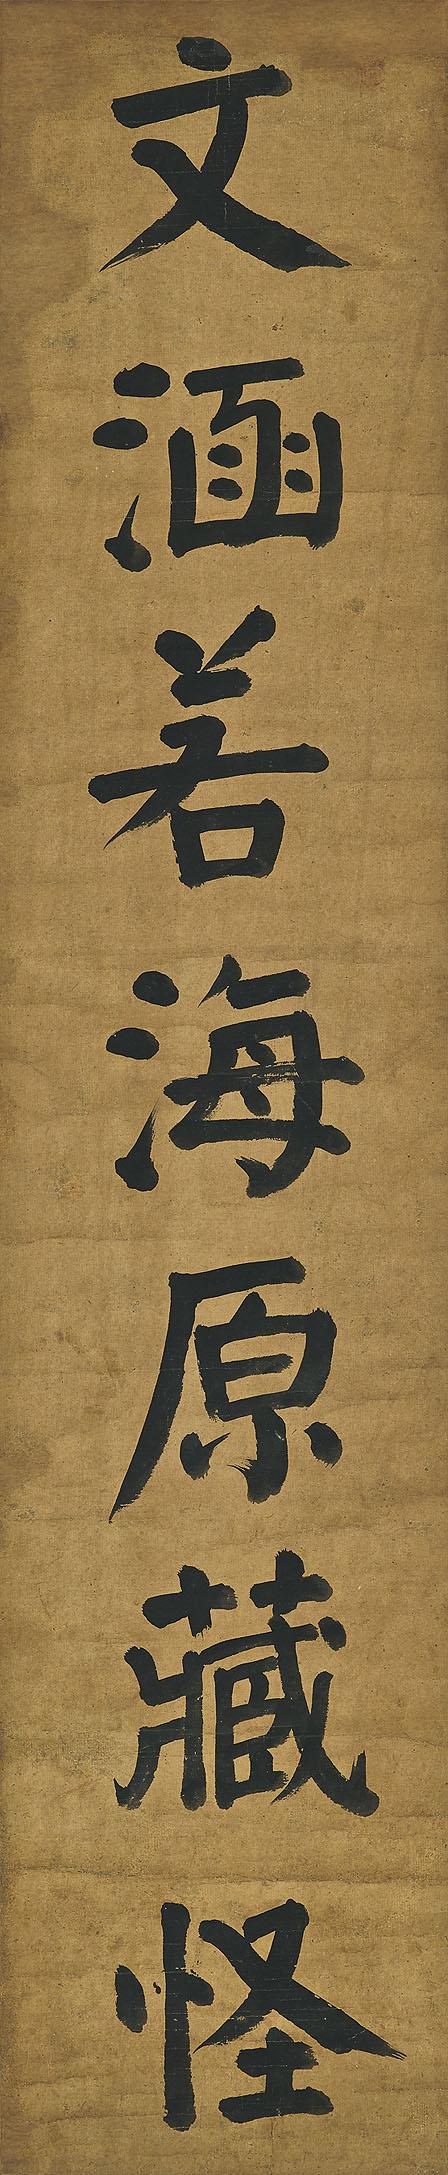 文涵若海原藏怪